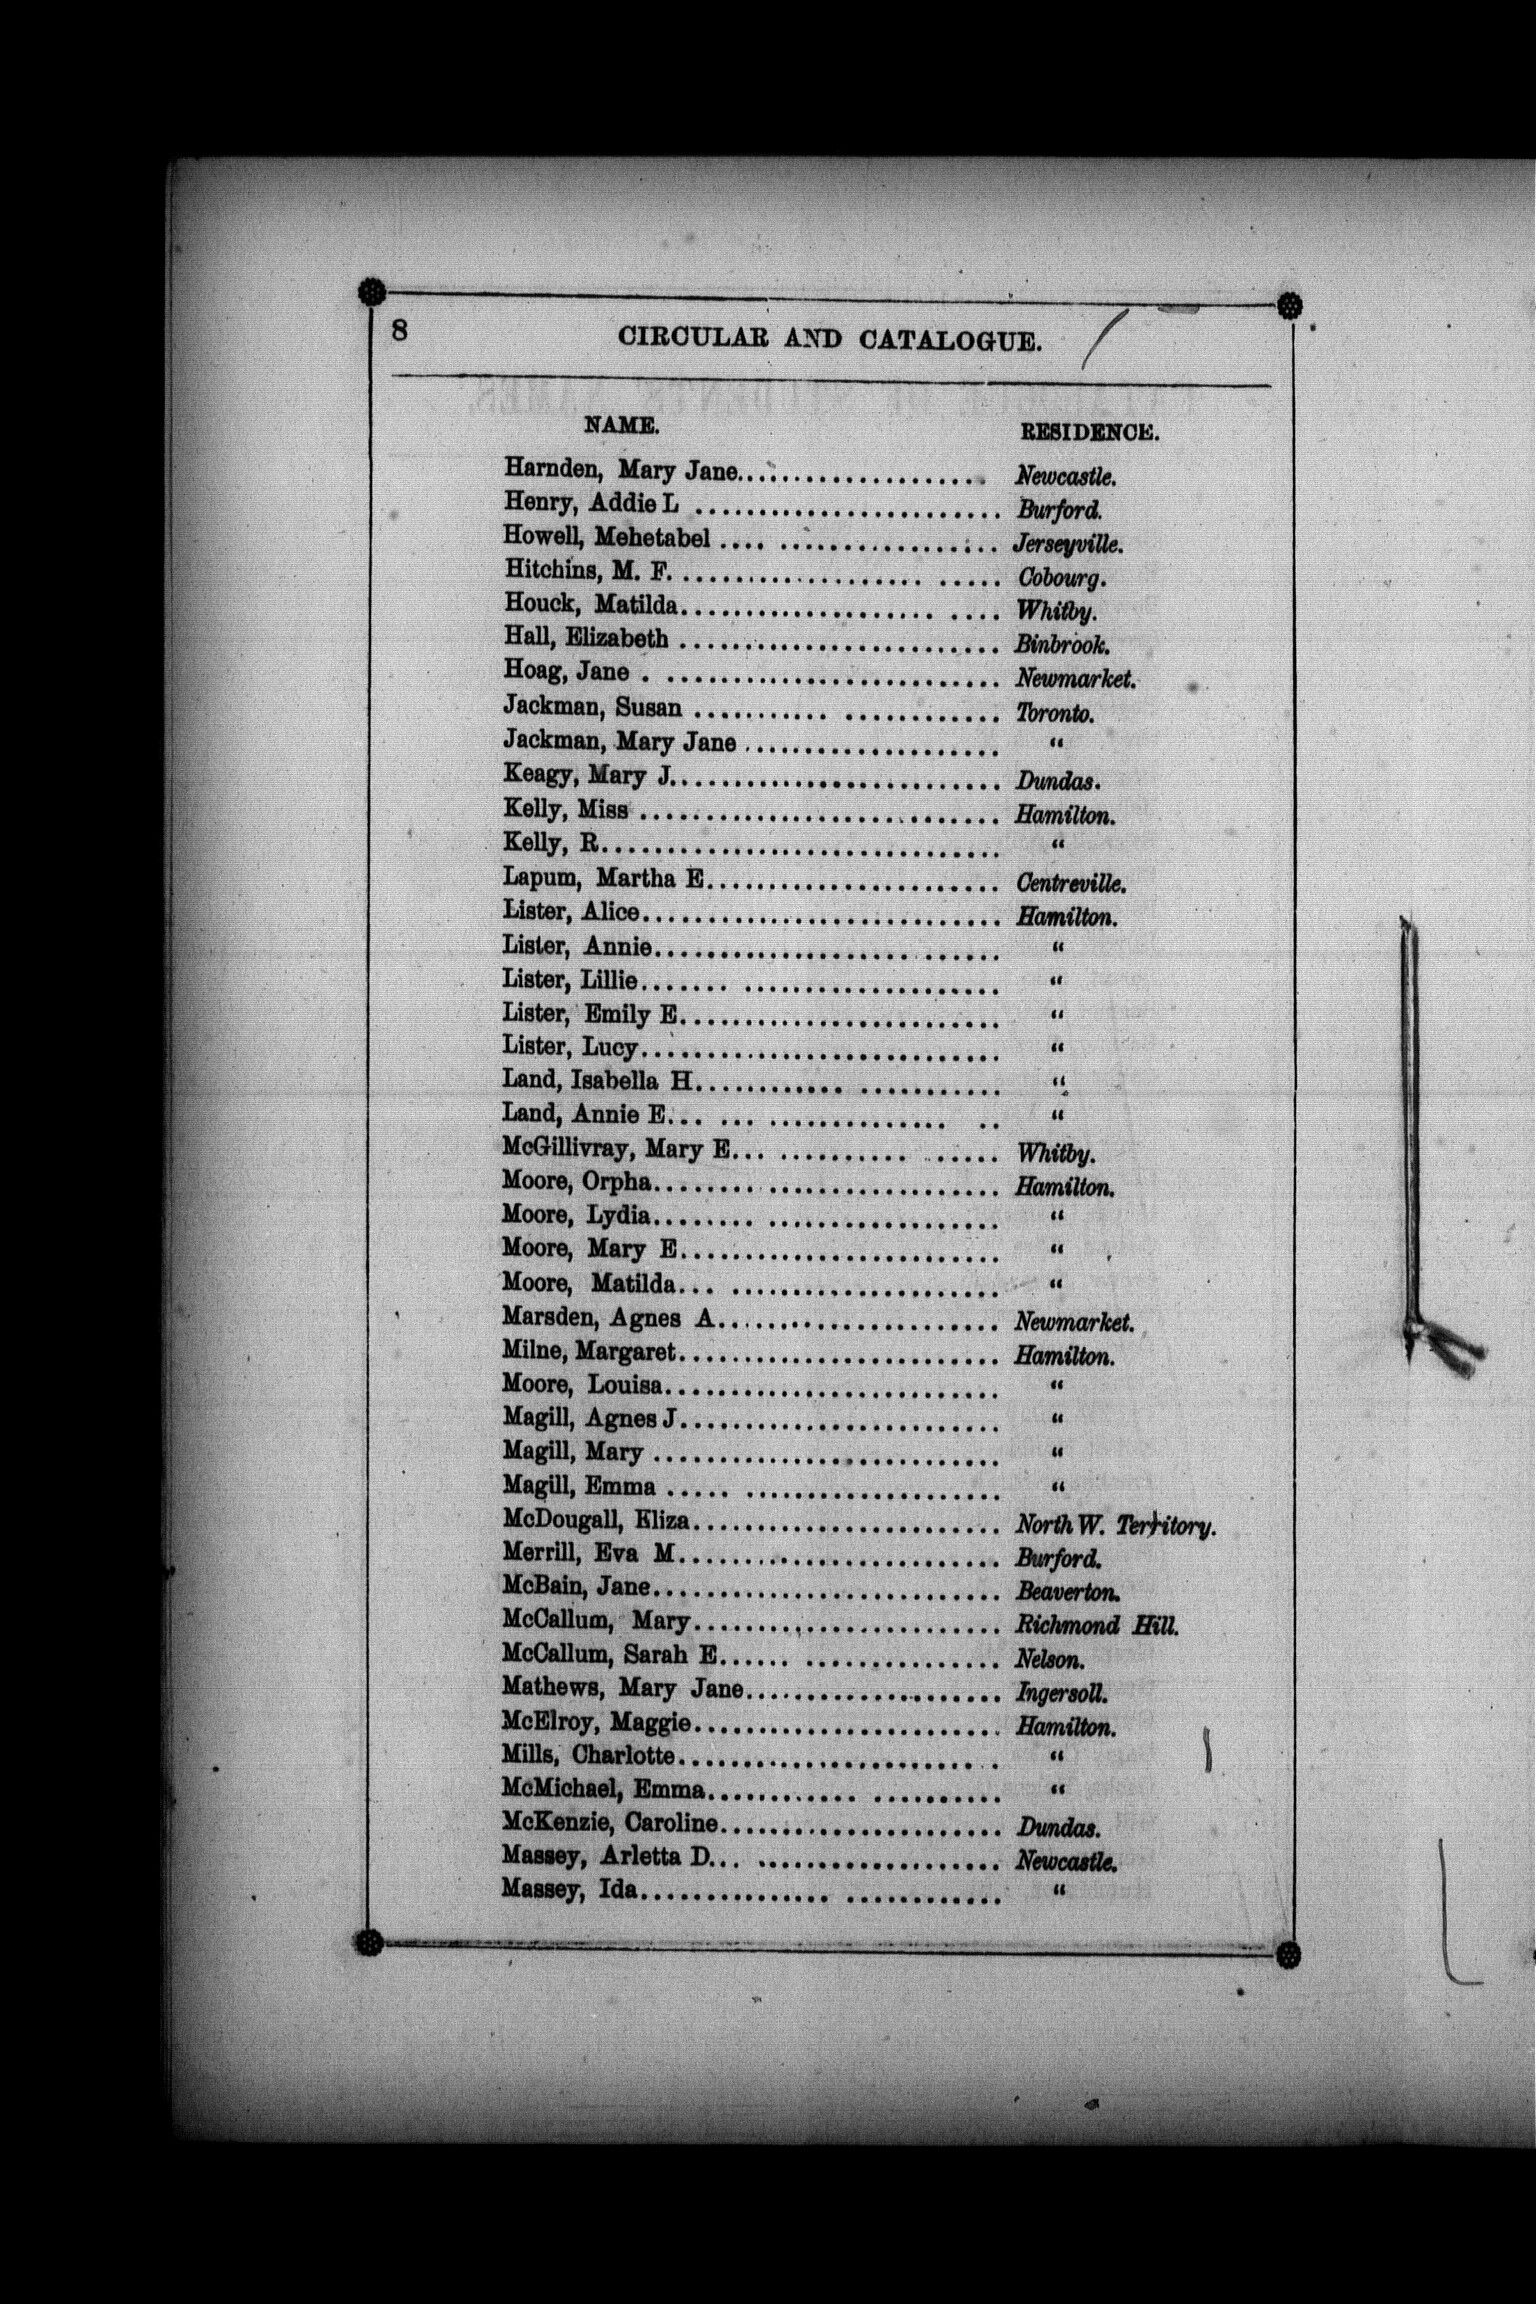 8 CIRCULAR AND CATALOGUE.
NAME. RESIDENCE.
Harnden, Mary Jane.................... Newcastle.
Henry, Addie L ........................ Burford.
Howell, Mehetabel .... ................. Jerseyville.
Hitchins, M. F. ................... ..... Cobourg.
Houck, Matilda.................... .... Whitby.
Hall, Elizabeth ......................... Binbrook.
Hoag, Jane . .......................... Newmarket.
Jackman, Susan ........... ............ Toronto.
Jackman, Mary Jane .................... “
Keagy, Mary J.......................... Dundas.
Kelly, Miss ............................ Hamilton.
Kelly, R............................... “
Lapum, Martha E....................... Centreville.
Lister, Alice............................ Hamilton.
Lister, Annie........................... “
Lister, Lillie....... .................... “
Lister, Emily E......................... “
Lister, Lucy............................ “
Land, Isabella H............ ........... “
Land, Annie E... ... .............. .. “
McGillivray, Mary E... .......... ...... Whitby.
Moore, Orpha........................... Hamilton.
Moore, Lydia........ .................. “
Moore, Mary E......................... “
Moore, Matilda... ..................... “
Marsden, Agnes A...................... Newmarket.
Milne, Margaret......................... Hamilton.
Moore, Louisa.......................... “
Magill, Agnes J......................... “
Magill, Mary ........................... “
Magill, Emma ..... .................... “
McDougall, Eliza........................ North W. Territory.
Merrill, Eva M......................... Burford.
McBain, Jane........................... Beaverton.
McCallum, Mary........................ Richmond Hill.
McCallum, Sarah E...... ............... Nelson.
Mathews, Mary Jane.................... Ingersoll.
McElroy, Maggie........................ Hamilton.
Mills, Charlotte......................... “
McMichael, Emma............ .......... “
McKenzie, Caroline...................... Dundas.
Massey, Arletta D... ................... Newcastle.
Massey, Ida............... ............ “